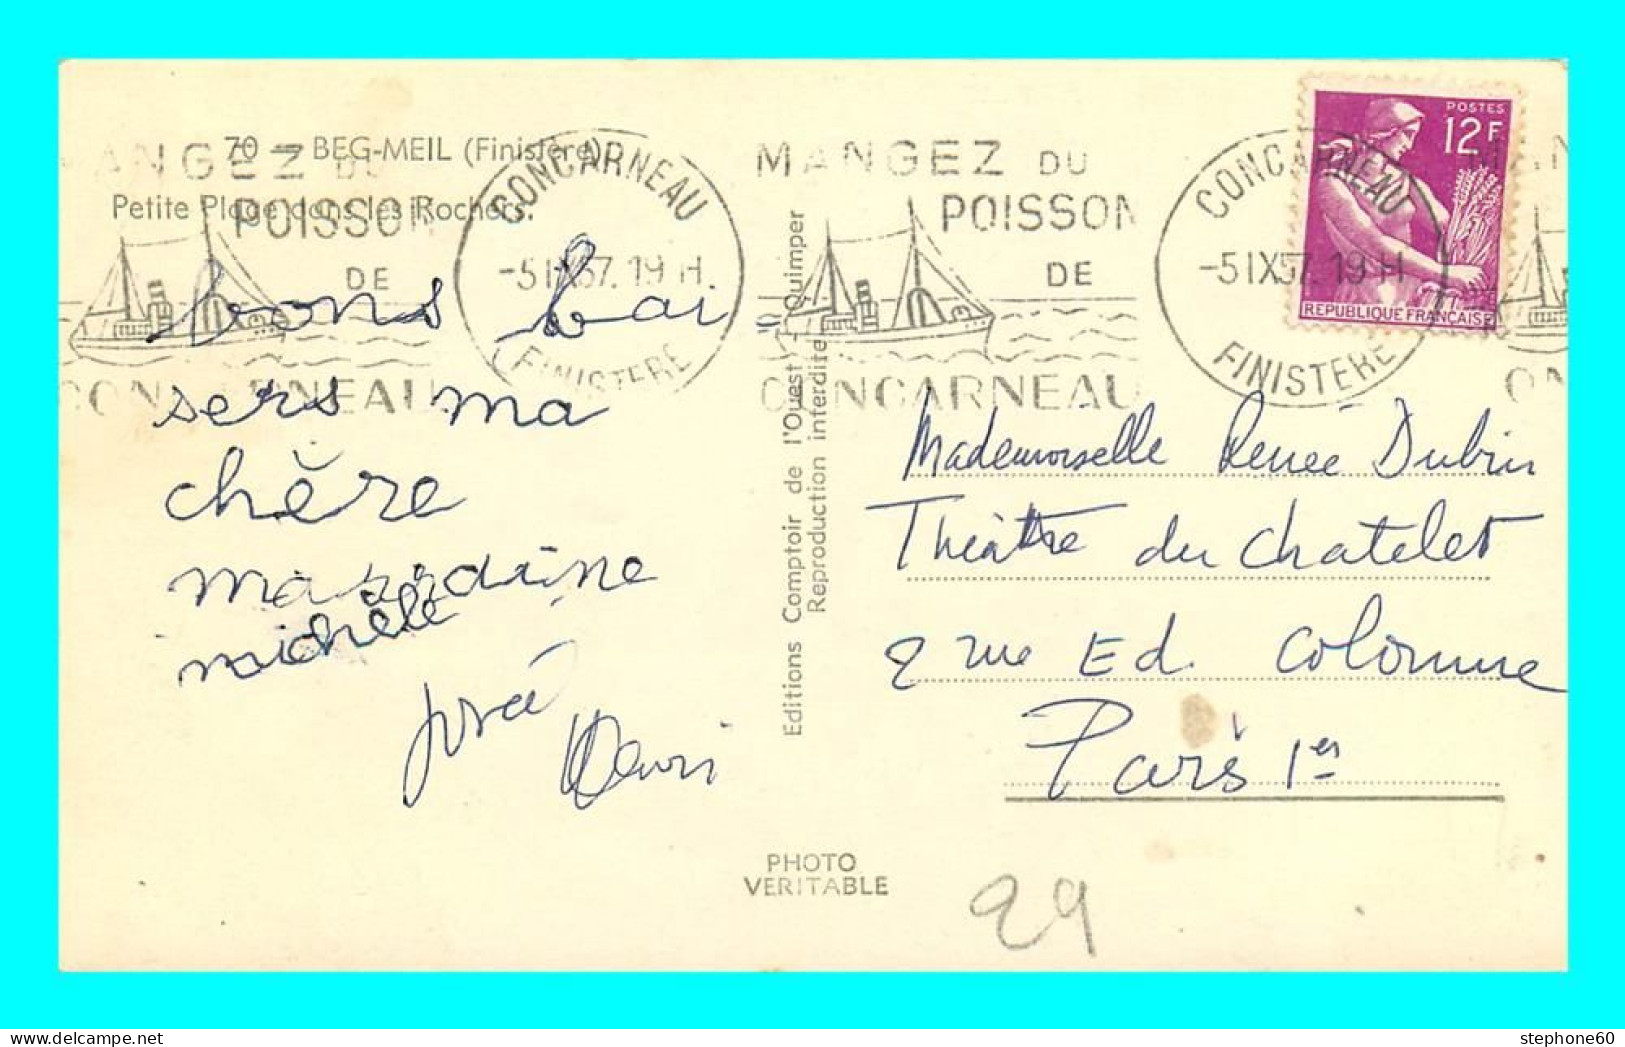 70 — BEG-MEIL (Finistère)
Petite Plage dans les Rochers.
MANGEZ DU
POISSON
DE
CONCARNEAU
CONCARNEAU
-5 IX 57. 19 H.
FINISTERE
MANGEZ DU
POISSON
DE
CONCARNEAU
CONCARNEAU
-5 IX 57. 19 H
FINISTERE
POSTES
12F
REPUBLIQUE FRANÇAISE
bons bai
sers ma
chère
marraine
michèle
José
Henri
Editions Comptoir de l'Ouest - Quimper
Reproduction interdite
Mademoiselle Renée Dubin
Théâtre du Chatelet
2 rue Ed. Colonne
Paris 1er
PHOTO
VERITABLE
29
stephone60